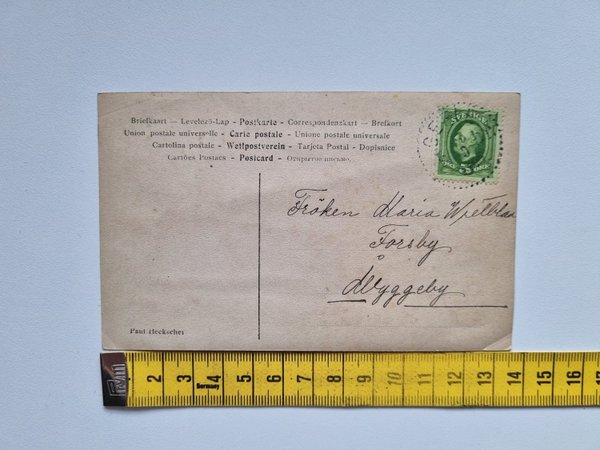 Briefkaart — Levelező-Lap - Postkarte - Correspondenzkart — Brefkort
Union postale universelle - Carte postale - Unione postale universale
Cartolina postale - Weltpostverein - Tarjeta Postal - Dopisnice
Cartões Postaes - Postcard - Открытое письмо.
SVERIGE
5 ÖRE
Fröken Maria
Forsby
Wyggeby
Paul Heckscher
2 3 4 5 6 7 8 9 10 11 12 13 14 15 16 17
Germany